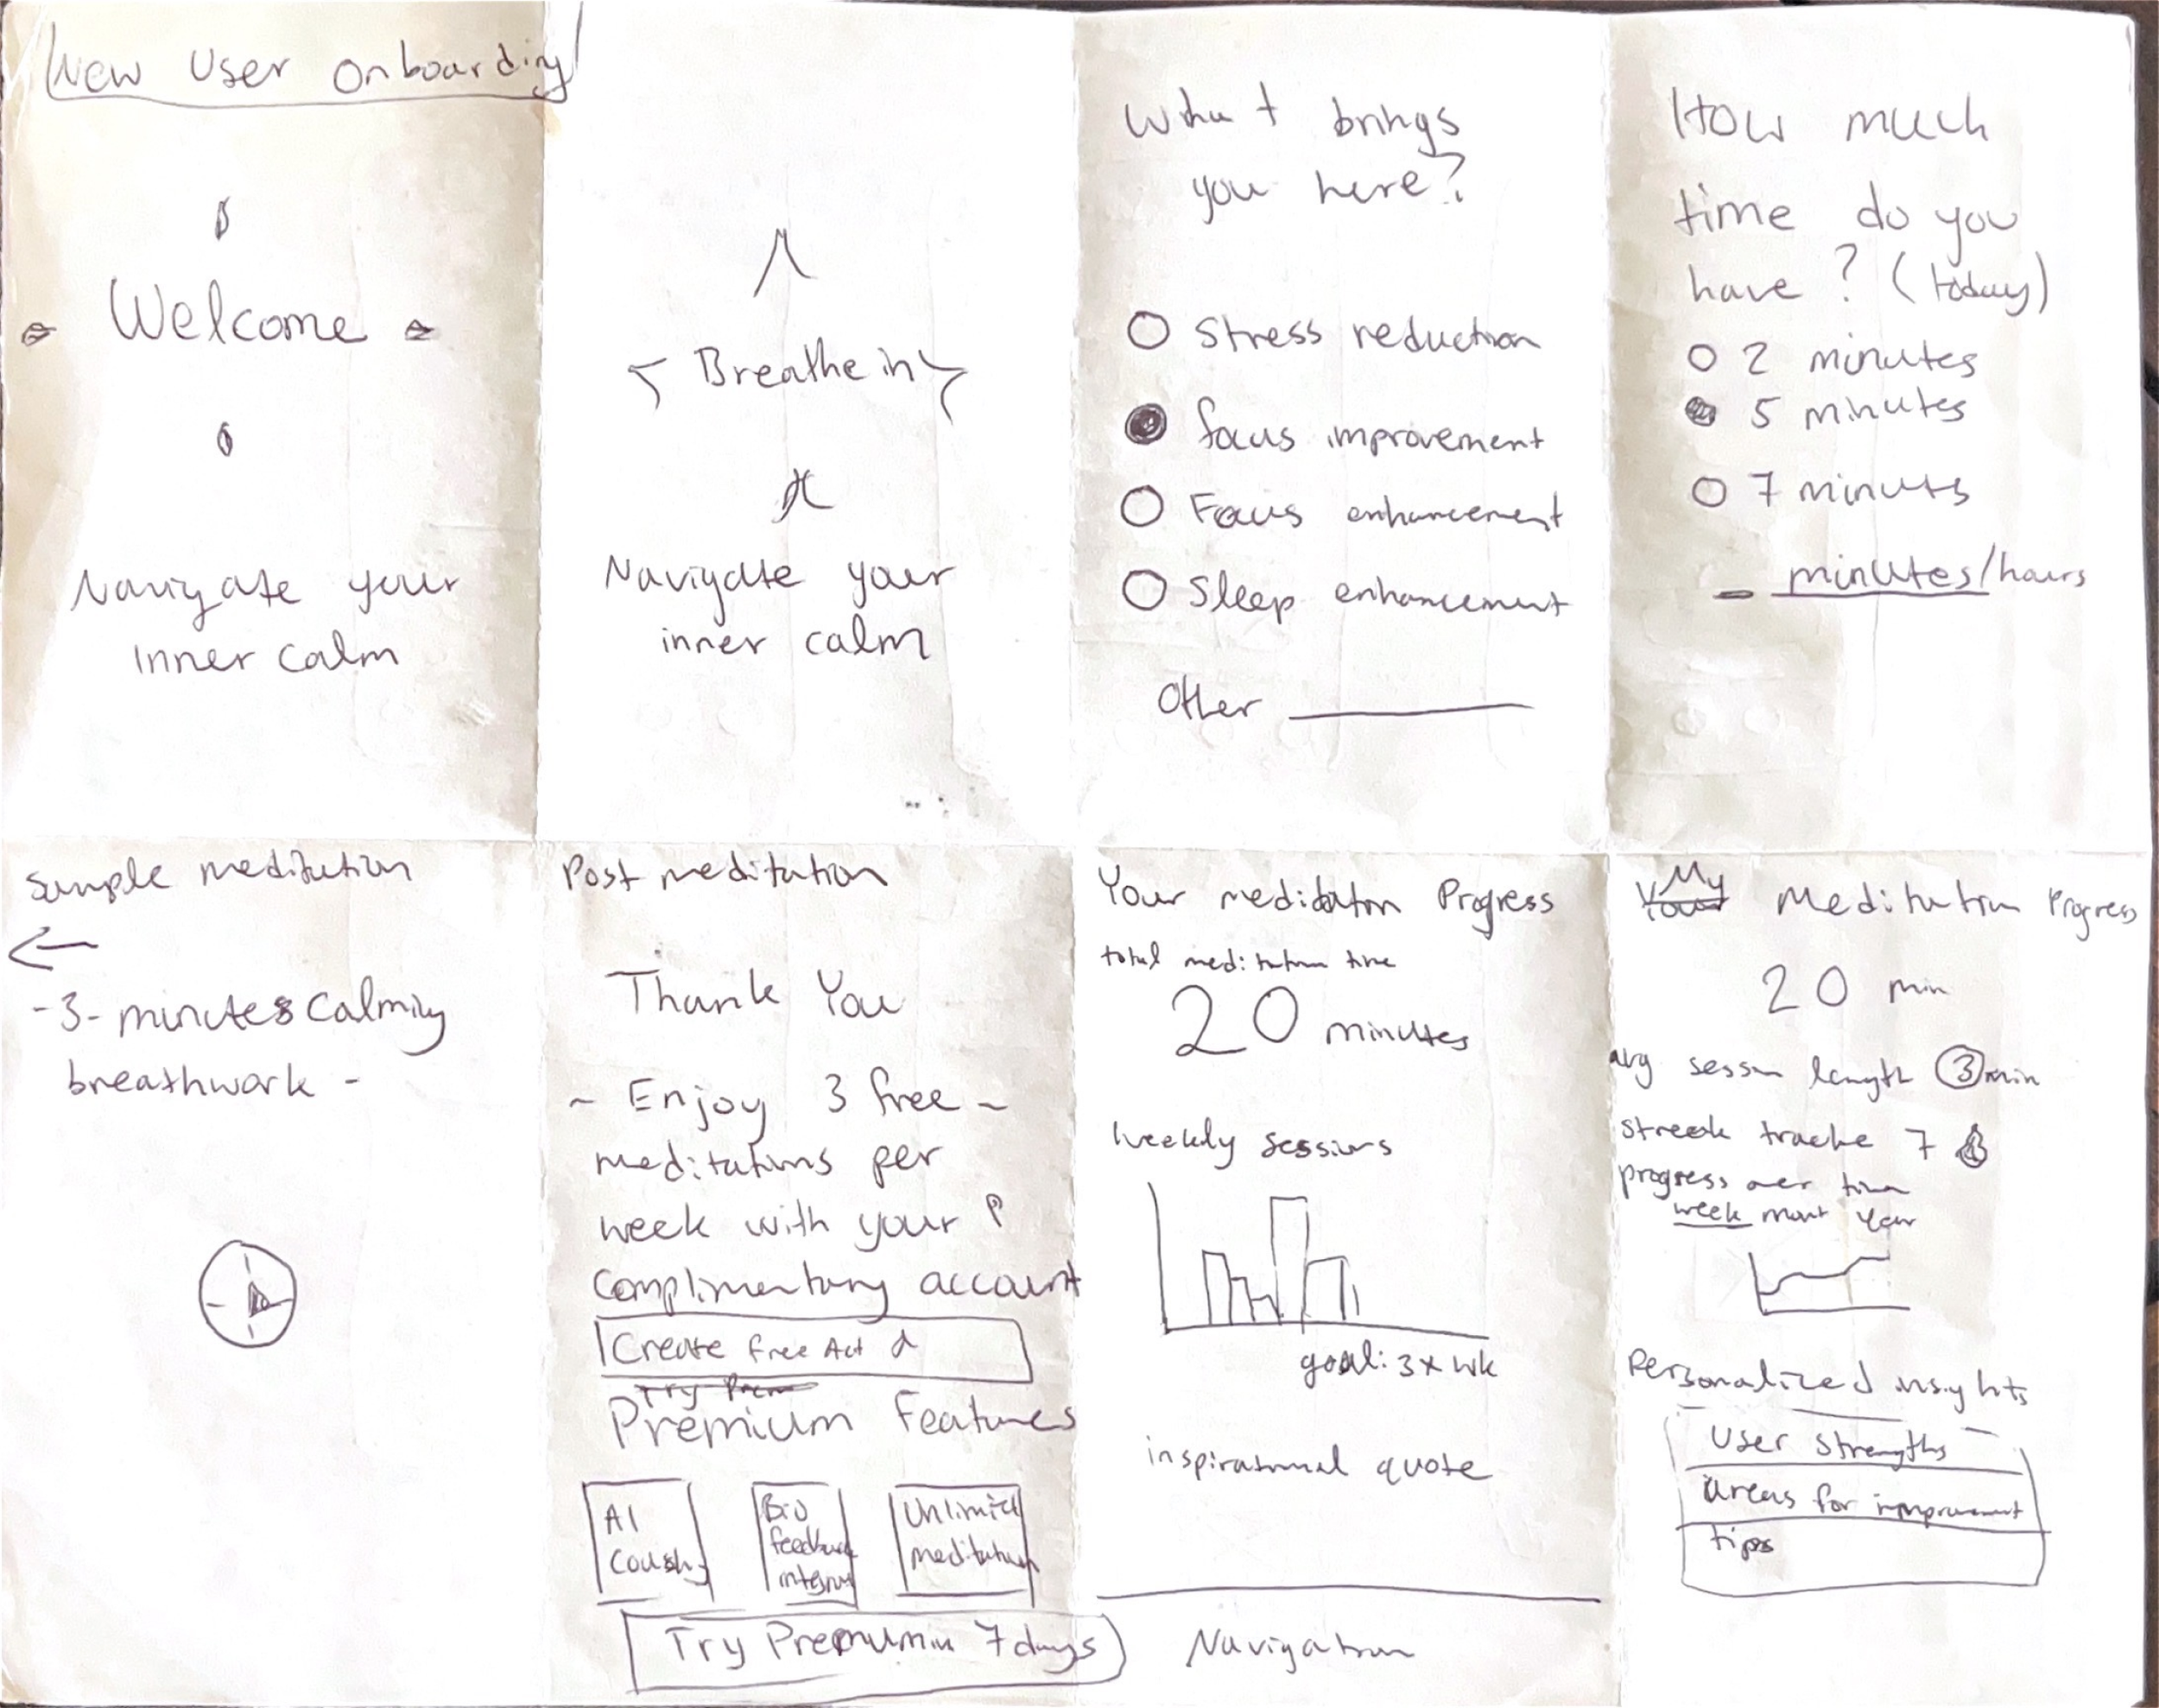 New User Onboarding
Welcome
Navigate your
inner calm
Breathe in
Navigate your
inner calm
What brings
you here?
Stress reduction
focus improvement
Focus enhancement
Sleep enhancement
Other
How much
time do you
have? (today)
2 minutes
5 minutes
7 minuts
minutes/hours
Sample meditation
-3-minutes calming
breathwork -
Post meditation
Thank You
~ Enjoy 3 free ~
meditations per
week with your
Complimentary account
Create free Act
Try Prem
Premium Features
AI
Coushy
Bio
feedback
Unlimited
meditation
Try Premumin 7 days
Your meditation Progress
total meditation time
20 minutes
Weekly sessions
goal: 3x wk
inspirational quote
Navigation
My
Your Meditation Progress
20 min
avg session length 3 min
streak tracke 7
progress over time
week mont Year
Personalized insights
User Strengths
areas for improvement
tips